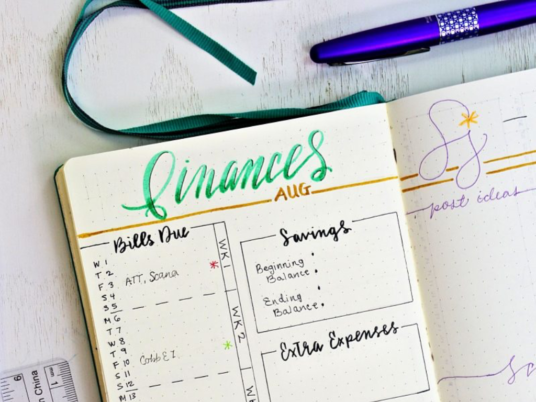 finances
AUG
Bills Due
W 1
T 2
F 3 ATT, Scana
S 4
S 5
M 6
T 7
W 8
T 9
F 10
S 11
S 12
M 13
WK 1
WK 2
Savings
Beginning
Balance
Ending
Balance
Extra Expenses
post ideas
6
n China
1